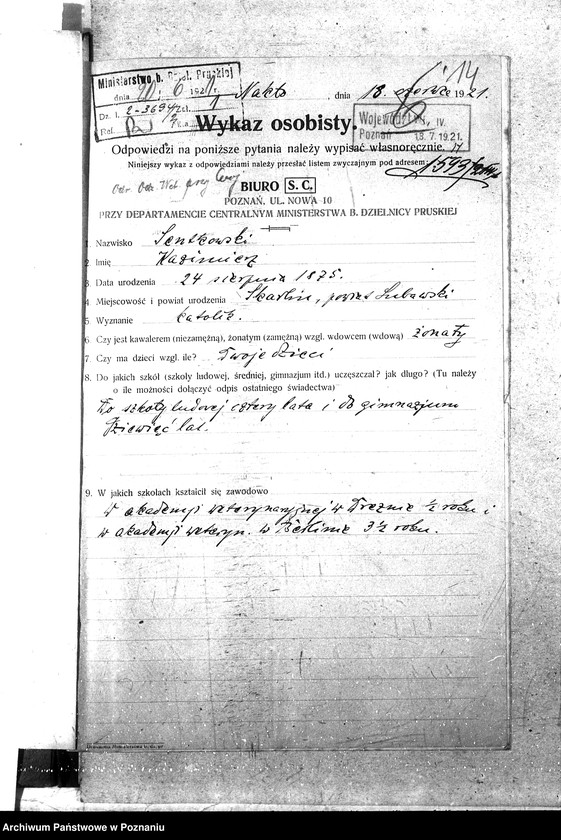 14
Ministerstwo b. Dziel. Pruskiej
dnia 20/6 1921
Dz. l.
Ref.
Nakło, dnia 18. czerwca 1921.
Wykaz osobisty.
Województwo, IV.
Poznań 13. 7. 1921.
Odpowiedzi na poniższe pytania należy wypisać własnoręcznie.
Niniejszy wykaz z odpowiedziami należy przesłać listem zwyczajnym pod adresem:
1593
BIURO S. C.
POZNAŃ, UL. NOWA 10
PRZY DEPARTAMENCIE CENTRALNYM MINISTERSTWA B. DZIELNICY PRUSKIEJ
1. Nazwisko Sentkowski
2. Imię Kazimierz
3. Data urodzenia 24 sierpnia 1875.
4. Miejscowość i powiat urodzenia Skarlin, powiat Lubawski
5. Wyznanie katolik.
6. Czy jest kawalerem (niezamężną), żonatym (zamężną) wzgl. wdowcem (wdową) żonaty
7. Czy ma dzieci wzgl. ile? Troje dzieci
8. Do jakich szkół (szkoły ludowej, średniej, gimnazjum itd.) uczęszczał? jak długo? (Tu należy
o ile możności dołączyć odpis ostatniego świadectwa)
Do szkoły ludowej cztery lata i do gimnazjum
dziewięć lat.
9. W jakich szkołach kształcił się zawodowo
w akademji weterynaryjnej w Dreznie ½ roku i
w akademji weteryn. w Berlinie 3½ roku.
Archiwum Państwowe w Poznaniu